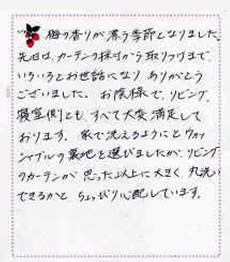 梅の香りが漂う季節となりました。
先日は、カーテンの採寸から取りつけまで、
いろいろとお世話になり ありがとう
ございました。お陰様で、リビング、
寝室側とも、すべて大変満足して
おります。家で洗えるようにとウォッ
シャブルの裏地を選びましたが、リビング
のカーテンが 思った以上に大きく、丸洗い
できるかと ちょっぴり心配しています。